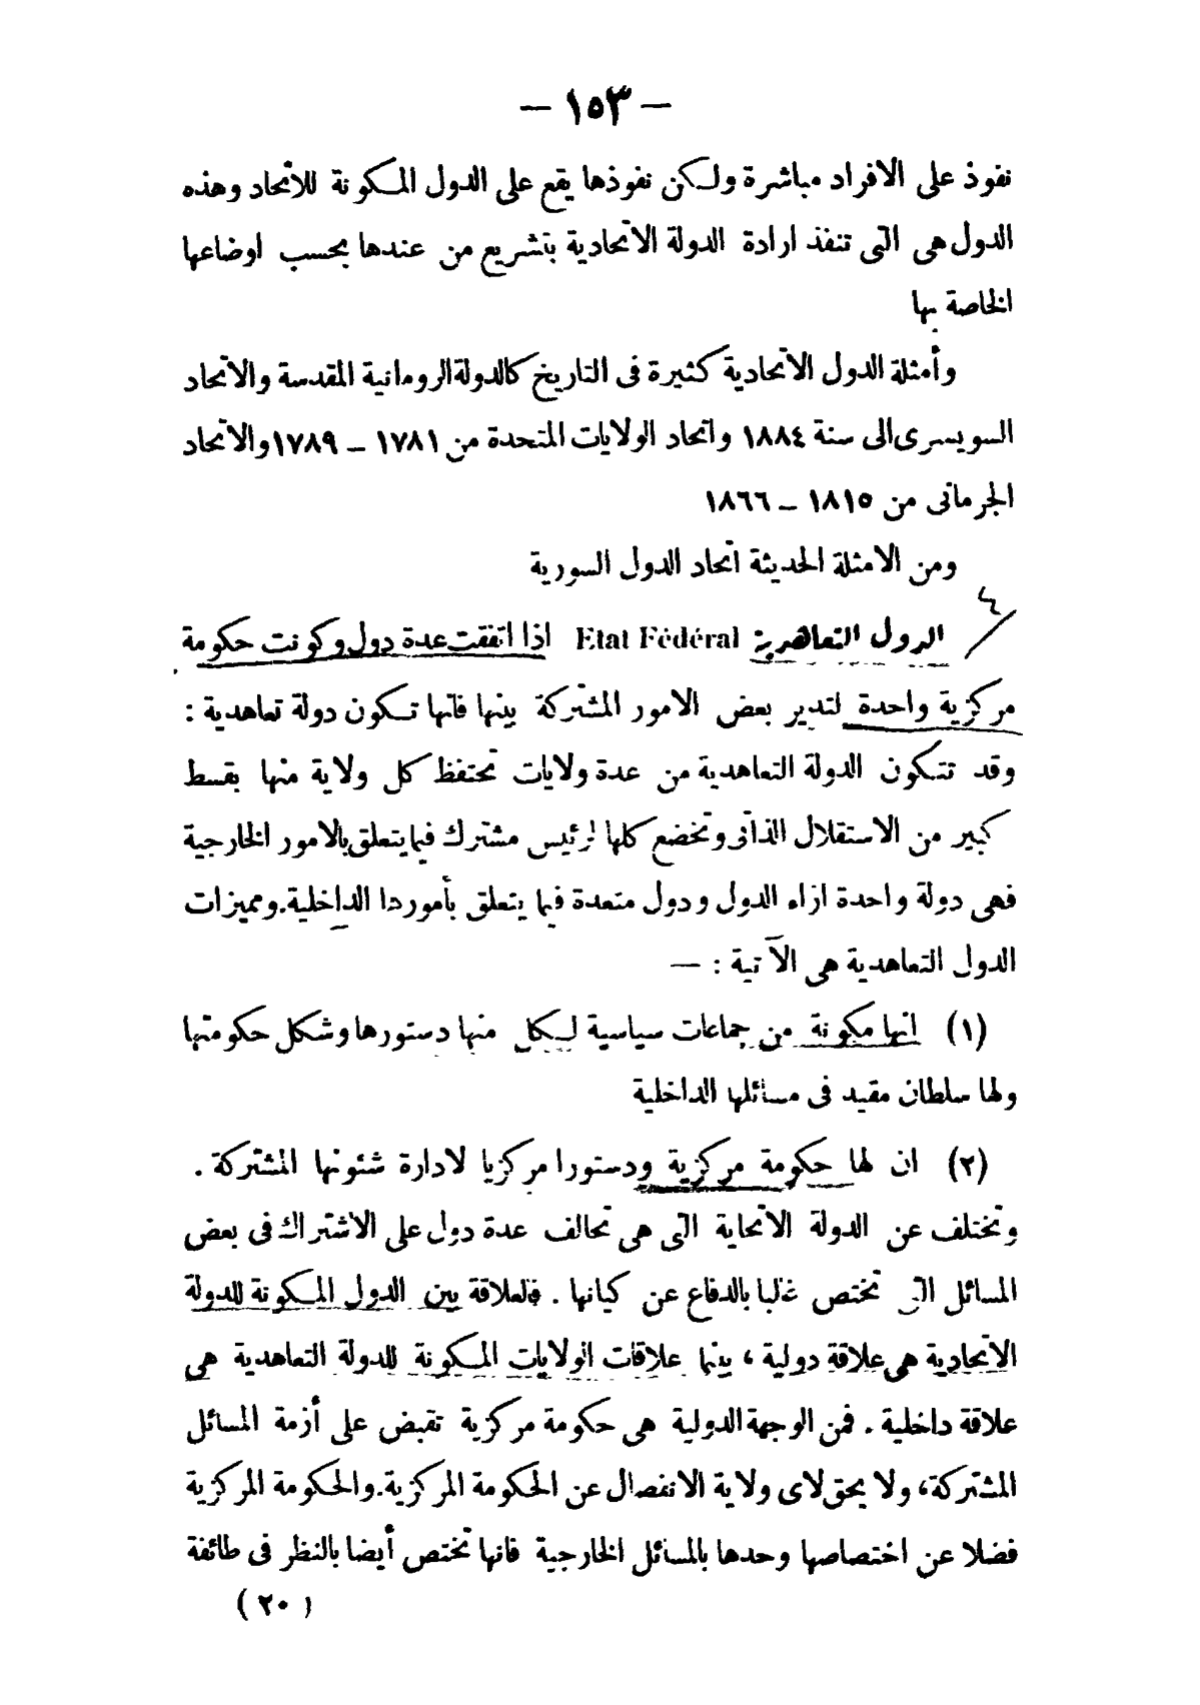 — ١٥٣ —
نفوذ على الافراد مباشرة ولكن نفوذها يقع على الدول المكونة للاتحاد وهذه
الدول هى التى تنفذ ارادة الدولة الاتحادية بتشريع من عندها بحسب اوضاعها
الخاصة بها
وأمثلة الدول الاتحادية كثيرة فى التاريخ كالدولة الرومانية المقدسة والاتحاد
السويسرى الى سنة ١٨٨٤ واتحاد الولايات المتحدة من ١٧٨١ – ١٧٨٩ والاتحاد
الجرمانى من ١٨١٥ – ١٨٦٦
ومن الامثلة الحديثة اتحاد الدول السورية
٤
الدول التعاهدية Etat Fédéral اذا اتفقت عدة دول وكونت حكومة
مركزية واحدة لتدير بعض الامور المشتركة بينها فانها تكون دولة تعاهدية :
وقد تتكون الدولة التعاهدية من عدة ولايات تحتفظ كل ولاية منها بقسط
كبير من الاستقلال الذاتى وتخضع كلها لرئيس مشترك فيما يتعلق بالامور الخارجية
فهى دولة واحدة ازاء الدول ودول متعدة فيما يتعلق بأمورها الداخلية. ومميزات
الدول التعاهدية هى الآتية : —
(١) انها مكونة من جماعات سياسية لكل منها دستورها وشكل حكومتها
ولها سلطان مقيد فى مسائلها الداخلية
(٢) ان لها حكومة مركزية ودستورا مركزيا لادارة شئونها المشتركة .
وتختلف عن الدولة الاتحاية التى هى تحالف عدة دول على الاشتراك فى بعض
المسائل التى تختص غالبا بالدفاع عن كيانها . فالعلاقة بين الدول المكونة للدولة
الاتحادية هى علاقة دولية ، بينما علاقات الولايات المكونة للدولة التعاهدية هى
علاقة داخلية . فمن الوجهة الدولية هى حكومة مركزية تقبض على أزمة المسائل
المشتركة، ولا يحق لاى ولاية الانفصال عن الحكومة المركزية. والحكومة المركزية
فضلا عن اختصاصها وحدها بالمسائل الخارجية فانها تختص أيضا بالنظر فى طائفة
(٢٠)